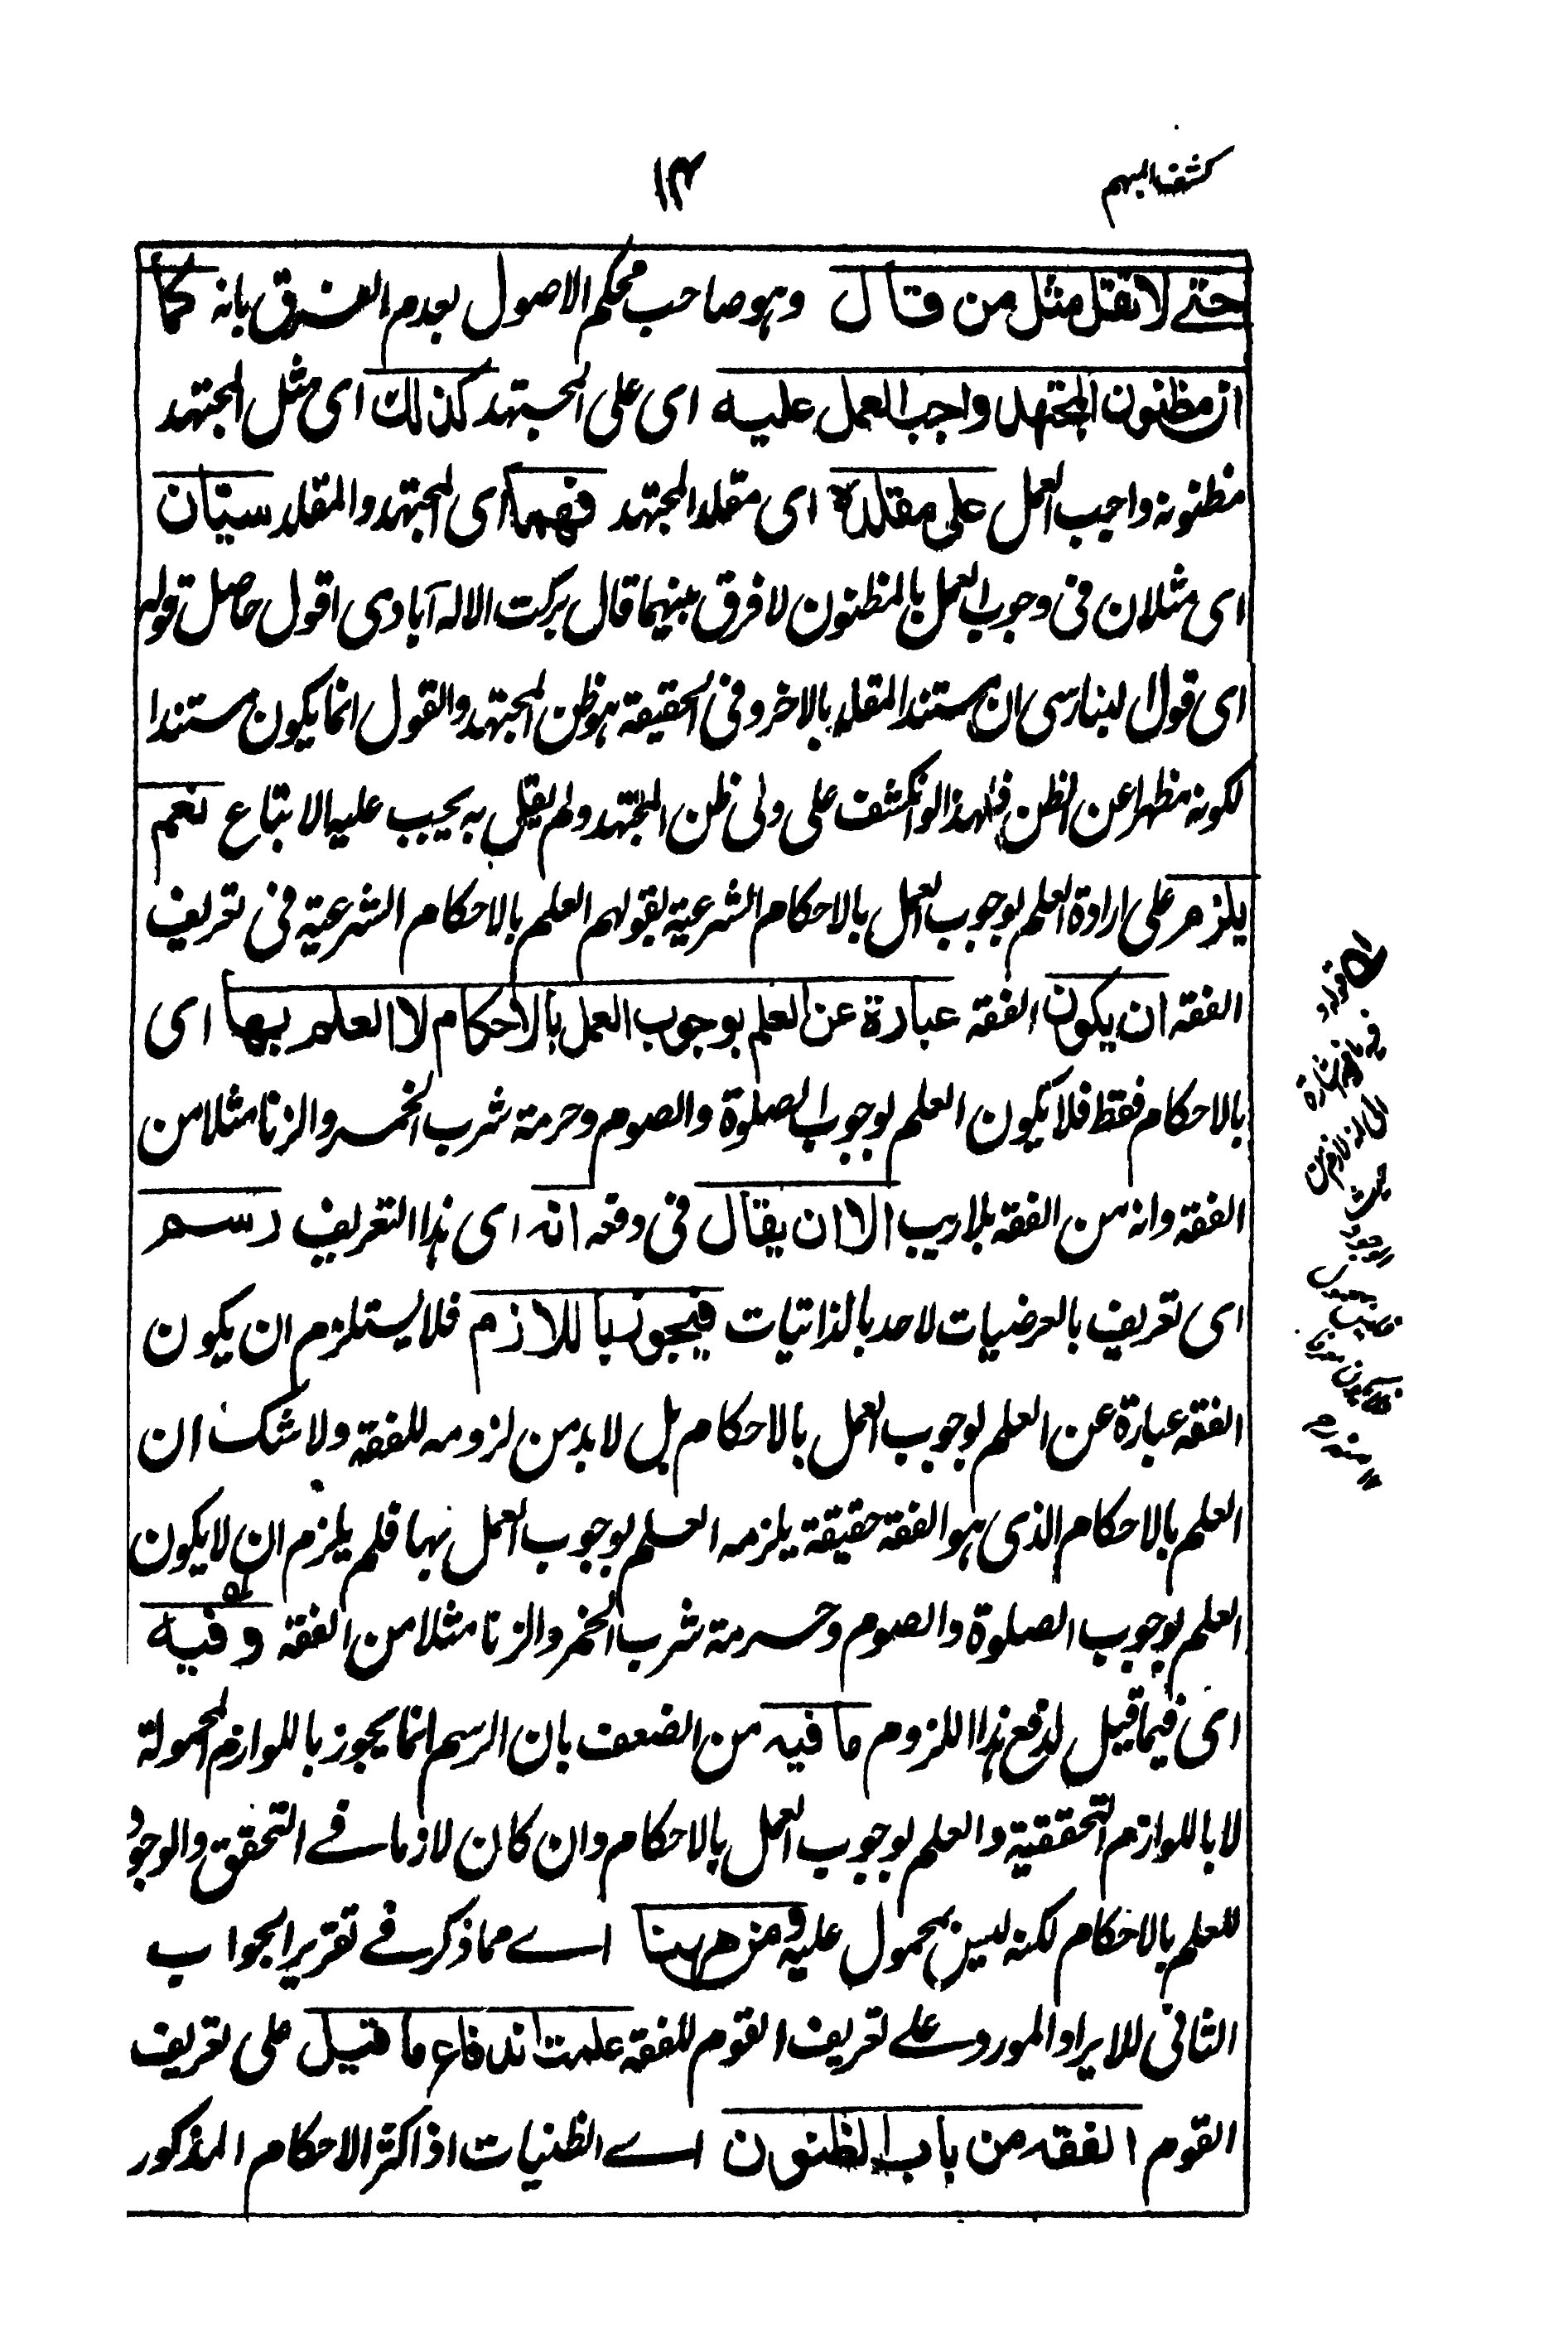 كشف المبهم
١٤
حتى لا تقل مثل من قال وهو صاحب محكم الاصول بعدم الفرق بانه كما
ان مظنون المجتهد واجب العمل عليه اى على المجتهد كذلك اى مثل المجتهد
مظنونه واجب العمل على مقلده اى مقلد المجتهد فهما اى المجتهد والمقلد سيّان
اى مثلان فى وجوب العمل بالمظنون لا فرق بينهما قال بركت الاله آبادى اقول حاصل قوله
اى قول البنارسى ان مستند المقلد بالاخر وفى الحقيقة هو ظن المجتهد والقول انما يكون مستندا
لكونه مظهرا عن الظن فلهذا لو انكشف على ولى ظن المجتهد ولم يقل به يجب عليه الاتباع نعم
يلزم على ارادة العلم بوجوب العمل بالاحكام الشرعية بقولهم العلم بالاحكام الشرعية فى تعريف
الفقه ان يكون الفقه عبارة عن العلم بوجوب العمل بالاحكام لا العلم بها اى
بالاحكام فقط فلا يكون العلم بوجوب الصلوة والصوم وحرمة شرب الخمر والزنا مثلا من
الفقه وانه من الفقه بلا ريب الا ان يقال فى دفعه انه اى هذا التعريف رسم
اى تعريف بالعرضيات لا حد بالذاتيات فيجوز باللازم فلا يستلزم ان يكون
الفقه عبارة عن العلم بوجوب العمل بالاحكام بل لا بد من لزومه للفقه ولا شك ان
العلم بالاحكام الذى هو الفقه حقيقة يلزمه العلم بوجوب العمل بها فلم يلزم ان لا يكون
العلم بوجوب الصلوة والصوم وحرمة شرب الخمر والزنا مثلا من الفقه وفيه
اى فيما قيل لدفع هذا اللزوم ما فيه من الضعف بان الرسم انما يجوز باللوازم المحمولة
لا باللوازم التحققية والعلم بوجوب العمل بالاحكام وان كان لازما فے التحقق والوجود
للعلم بالاحكام لكنه ليس بمحمول عليه ومن ههنا اے مما ذكر فے تقرير الجواب
الثانى للايراد المورد علے تعريف القوم للفقه علمت اندفاع ما قيل على تعريف
القوم الفقه من باب الظنون اے الظنيات اذ اكثر الاحكام المذكور